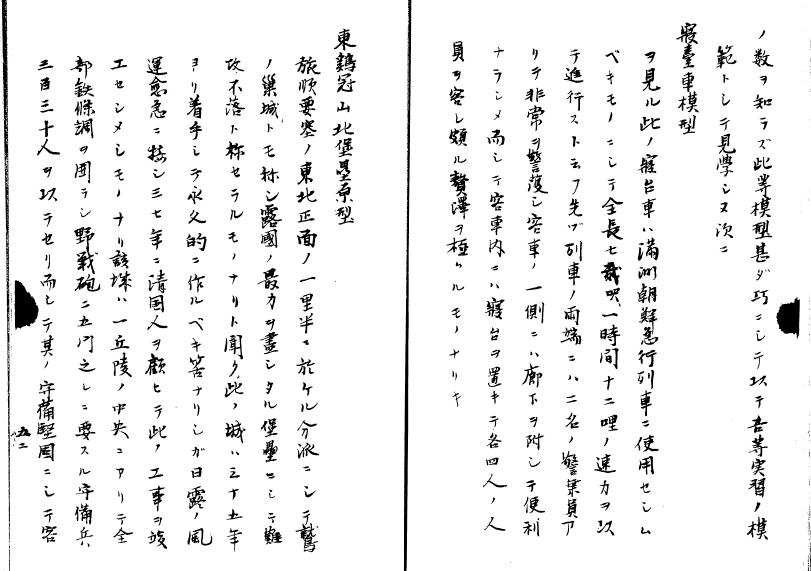 ノ数ヲ知ラズ此等模型甚ダ巧ニシテ以テ吾等実習ノ模
範トシテ見学シヌ次ニ
寝臺車模型
ヲ見ル此ノ寝台車ハ満洲朝鮮急行列車ニ使用セシム
ベキモノニシテ全長七裁呎一時間十二哩ノ速力ヲ以
テ進行スト云フ先ヅ列車ノ両端ニハ二名ノ警乗員ア
リテ非常ヲ警護シ客車ノ一側ニハ廊下ヲ附シテ便利
ナラシメ而シテ客車内ニハ寝台ヲ置キテ各四人ノ人
員ヲ容レ頗ル贅澤ヲ極ムルモノナリキ
東鶏冠山北堡塁原型
旅順要塞ノ東北正面ノ一里半ニ於ケル分派ニシテ鷲
ノ巣城トモ称シ露國ノ最力ヲ盡シタル堡壘ニシテ難
攻不落ト称セラルモノナリト聞ク此ノ城ハ三十五年
ヨリ着手シテ永久的ニ作ルベキ筈ナリシガ日露ノ風
運愈急ニ接シ三七年ニ清国人ヲ顧ヒテ此ノ工事ヲ竣
エセシメシモノナリ該塁ハ一丘陵ノ中央ニアリテ全
部鉄條調ヲ囲テシ野戦砲ニ五門之レニ要スル守備兵
三百三十人ヲ以テセリ而シテ其ノ守備堅固ニシテ容
五二